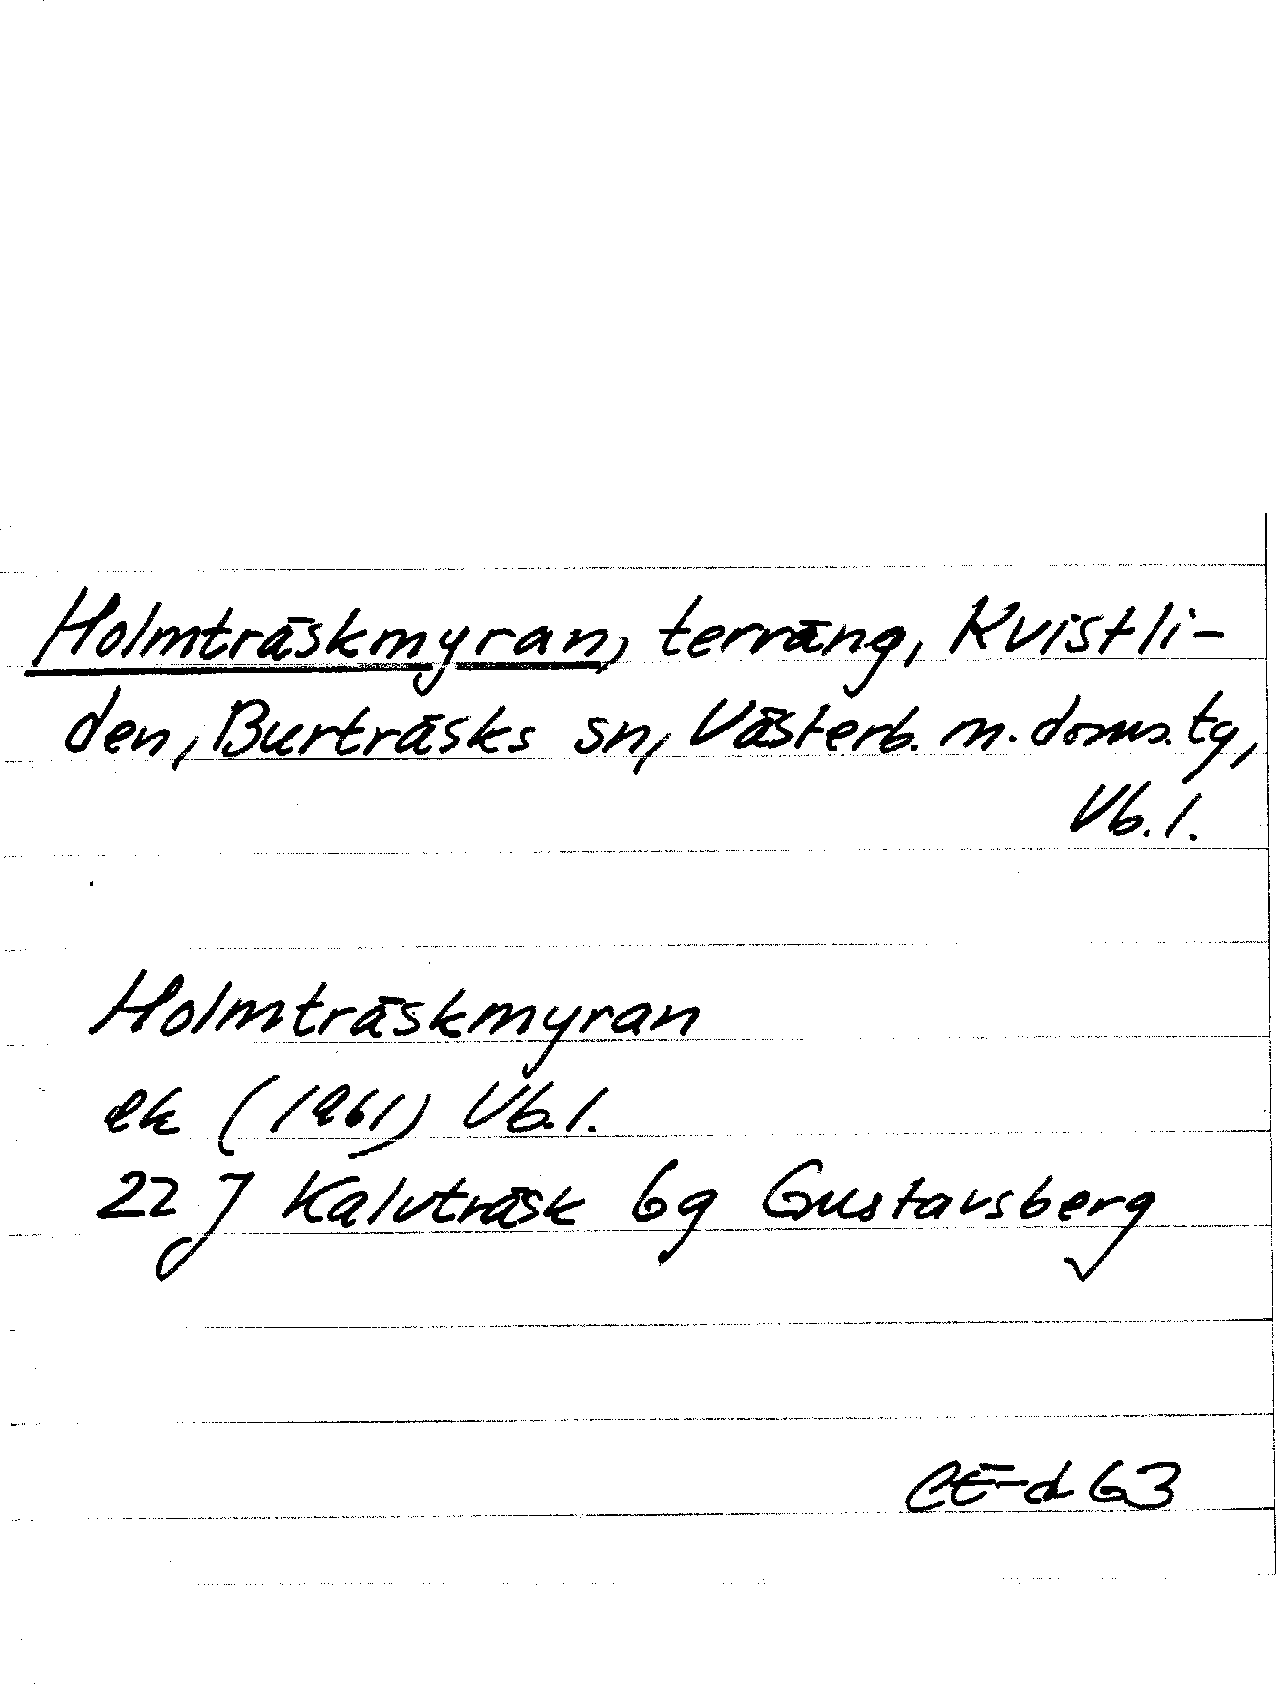 Holmträskmyran, terräng, Kvistli-
den, Burträsks sn, Västerb. m. doms. tg,
Vb. l.
Holmträskmyran
ek (1961) Vb. l.
22 J Kalvträsk 6g Gustavsberg
CE-d 63